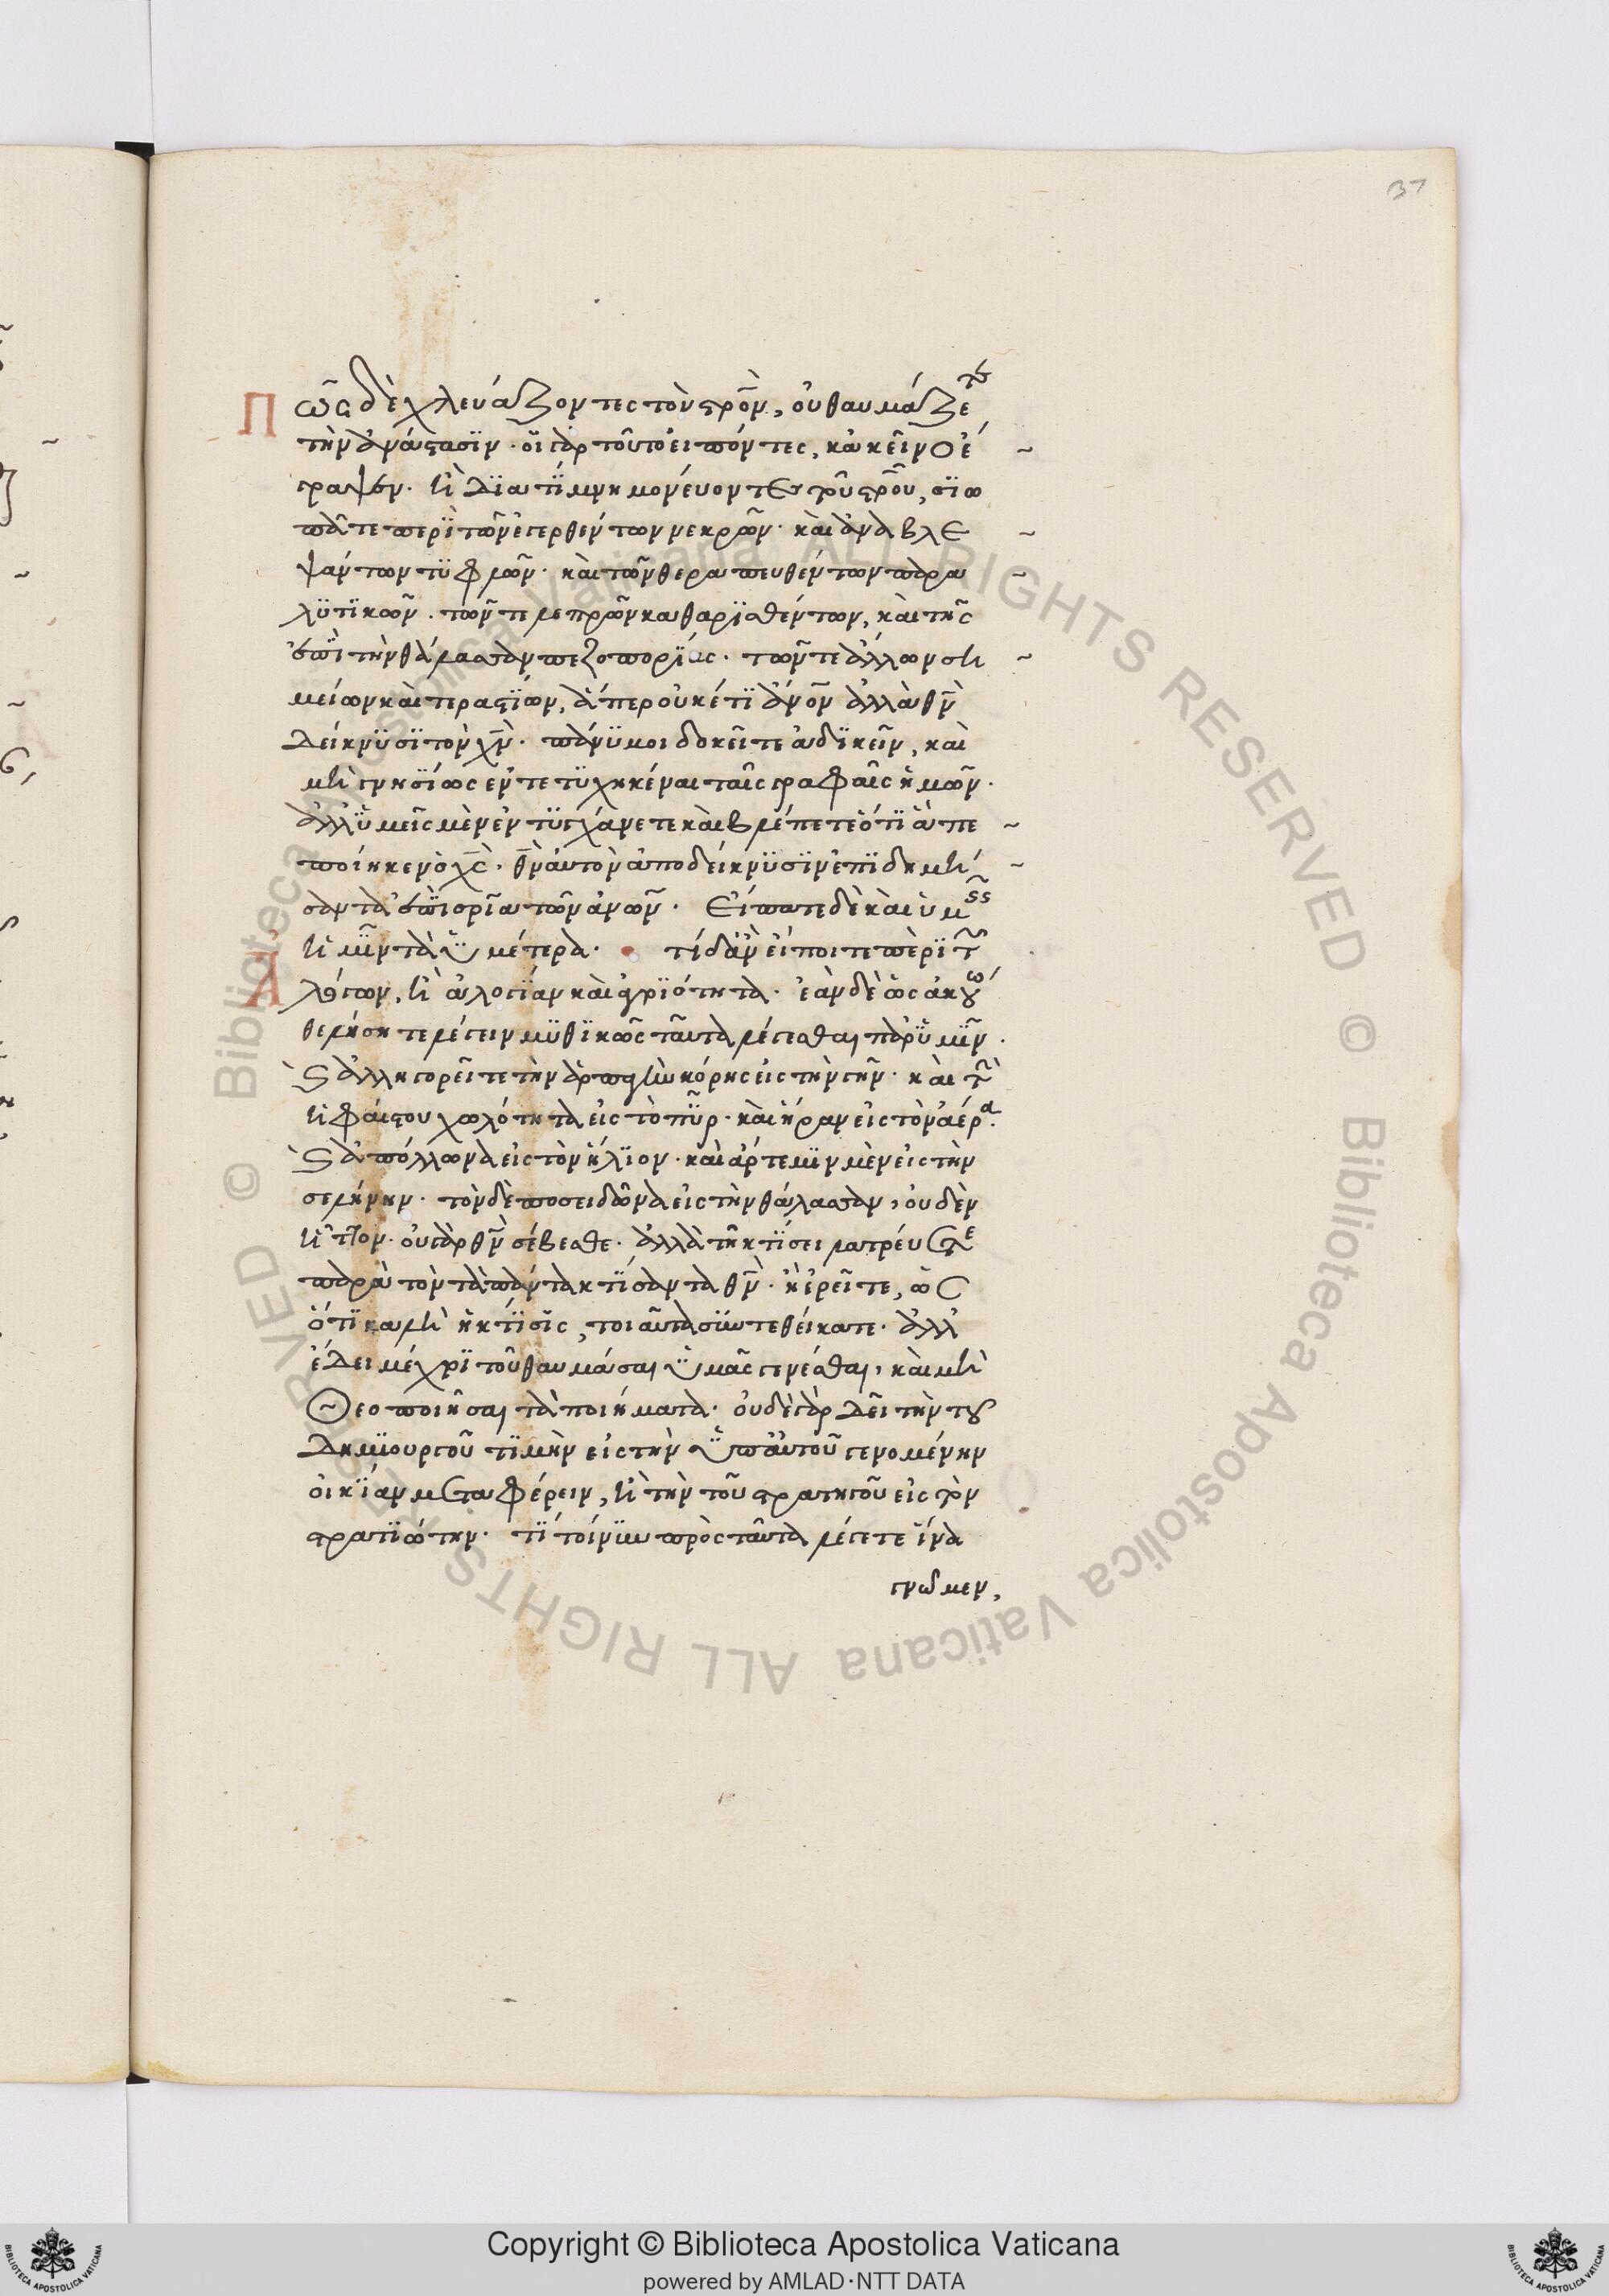 37
Πῶς δὲ χλευάζοντες τὸν σ̅ρ̅ὸν, οὐ θαυμάζετε
τὴν ἀνάστασϊν · οἱ γὰρ τοῦτο εἰπόντες, κἀκεῖνο ἔ
γραψαν. ἢ δϊατΐ μνημονεύοντες τοῦ σ̅ρ̅οῦ, σϊω
πᾶτε περϊ τῶν ἐγερθέντων νεκρῶν · καὶ ἀναβλε
ψάντων τϋφλῶν · καὶ τῶν θεραπευθέντων παρα
λϋτϊκῶν · τῶν τε λεπρῶν καθαρϊσθέντων, καὶ τῆς
ἐπῒ τὴν θάλασσαν πεζοπορΐας · τῶν τε ἄλλων ση
μείων καὶ τεραστΐων, ἅπερ οὐκέτϊ ἄν̅ο̅ν ἀλλὰ θ̅ν̅
δείκνϋσϊ τὸν χ̅ν̅ · πάνϋ μοι δοκεῖτε ἀδϊκεῖν, καὶ
μὴ γνησΐως ἐντετϋχηκέναι ταῖς γραφαῖς ἡμῶν ·
ἀλλ' ὑμεῖς μὲν ἐντϋγχάνετε καὶ βλέπετε ὅτϊ ἅ πε
ποίηκεν ὁ χ̅ς̅, θ̅ν̅ αὐτὸν ἀποδείκνϋσϊν ἐπϊδημή
σαντα ἐπῒ σ̅ρ̅ίᾳ τῶν ἀ̅ν̅ω̅ν · Εἴπατε δὲ καὶ ὑμεῖς
ἡμῖν τὰ ὑμέτερα · τί δ' ἂν εἴποιτε περϊ τῶν
Ἀλόγων, ἢ ἀλογΐαν καὶ ἀγρϊότητα · ἐὰν δὲ ὡς ἀκούω
θελήσητε λέγειν μϋθϊκῶς ταῦτα λέγεσθαι παρ' ὑμῖν ·
καὶ ἀλληγορεῖτε τὴν ἁρπαγὴν κόρης εἰς τὴν γῆν · καὶ τὴν
ἡφαίστου χωλότητα εἰς τὸ πῦρ · καὶ ἥραν εἰς τὸν ἀέρα ·
καὶ ἀπόλλωνα εἰς τὸν ἥλϊον · καὶ ἄρτεμϊν μὲν εἰς τὴν
σελήνην · τὸν δὲ ποσειδῶνα εἰς τὴν θάλασσαν, οὐδὲν
ἧττον · οὐ γὰρ θ̅ν̅ σέβεσθε · ἀλλὰ τῇ κτΐσει λατρεύετε
παρὰ τὸν τὰ πάντα κτΐσαντα θ̅ν̅ · κ' ἐρεῖτε, ὡς
ὅτϊ καλὴ ἡ κτΐσϊς, τοιαῦτα σϋντεθείκατε · ἀλλ'
ἔδει μέχρϊ τοῦ θαυμάσαι ὑμᾶς γενέσθαι, καὶ μὴ
Θεοποιῆσαι τὰ ποιήματα · οὐδὲ γὰρ δεῖ τὴν τοῦ
Δημϊουργοῦ τϊμὴν εἰς τὴν ὑπ' αὐτοῦ γενομένην
οἰκΐαν μεταφέρειν, ἢ τὴν τοῦ στρατηγοῦ εἰς τὸν
στρατϊώτην · τΐ τοίνϋν πρὸς ταῦτα λέγετε ἵνα
γνῶμεν,
© Biblioteca Apostolica Vaticana ALL RIGHTS RESERVED © Biblioteca Apostolica Vaticana ALL RIGHTS RESERVED
Copyright © Biblioteca Apostolica Vaticana
powered by AMLAD·NTT DATA
BIBLIOTECA APOSTOLICA VATICANA
BIBLIOTECA APOSTOLICA VATICANA